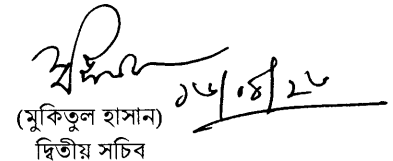 ১৬/০৪/২৬
(মুকিতুল হাসান)
দ্বিতীয় সচিব